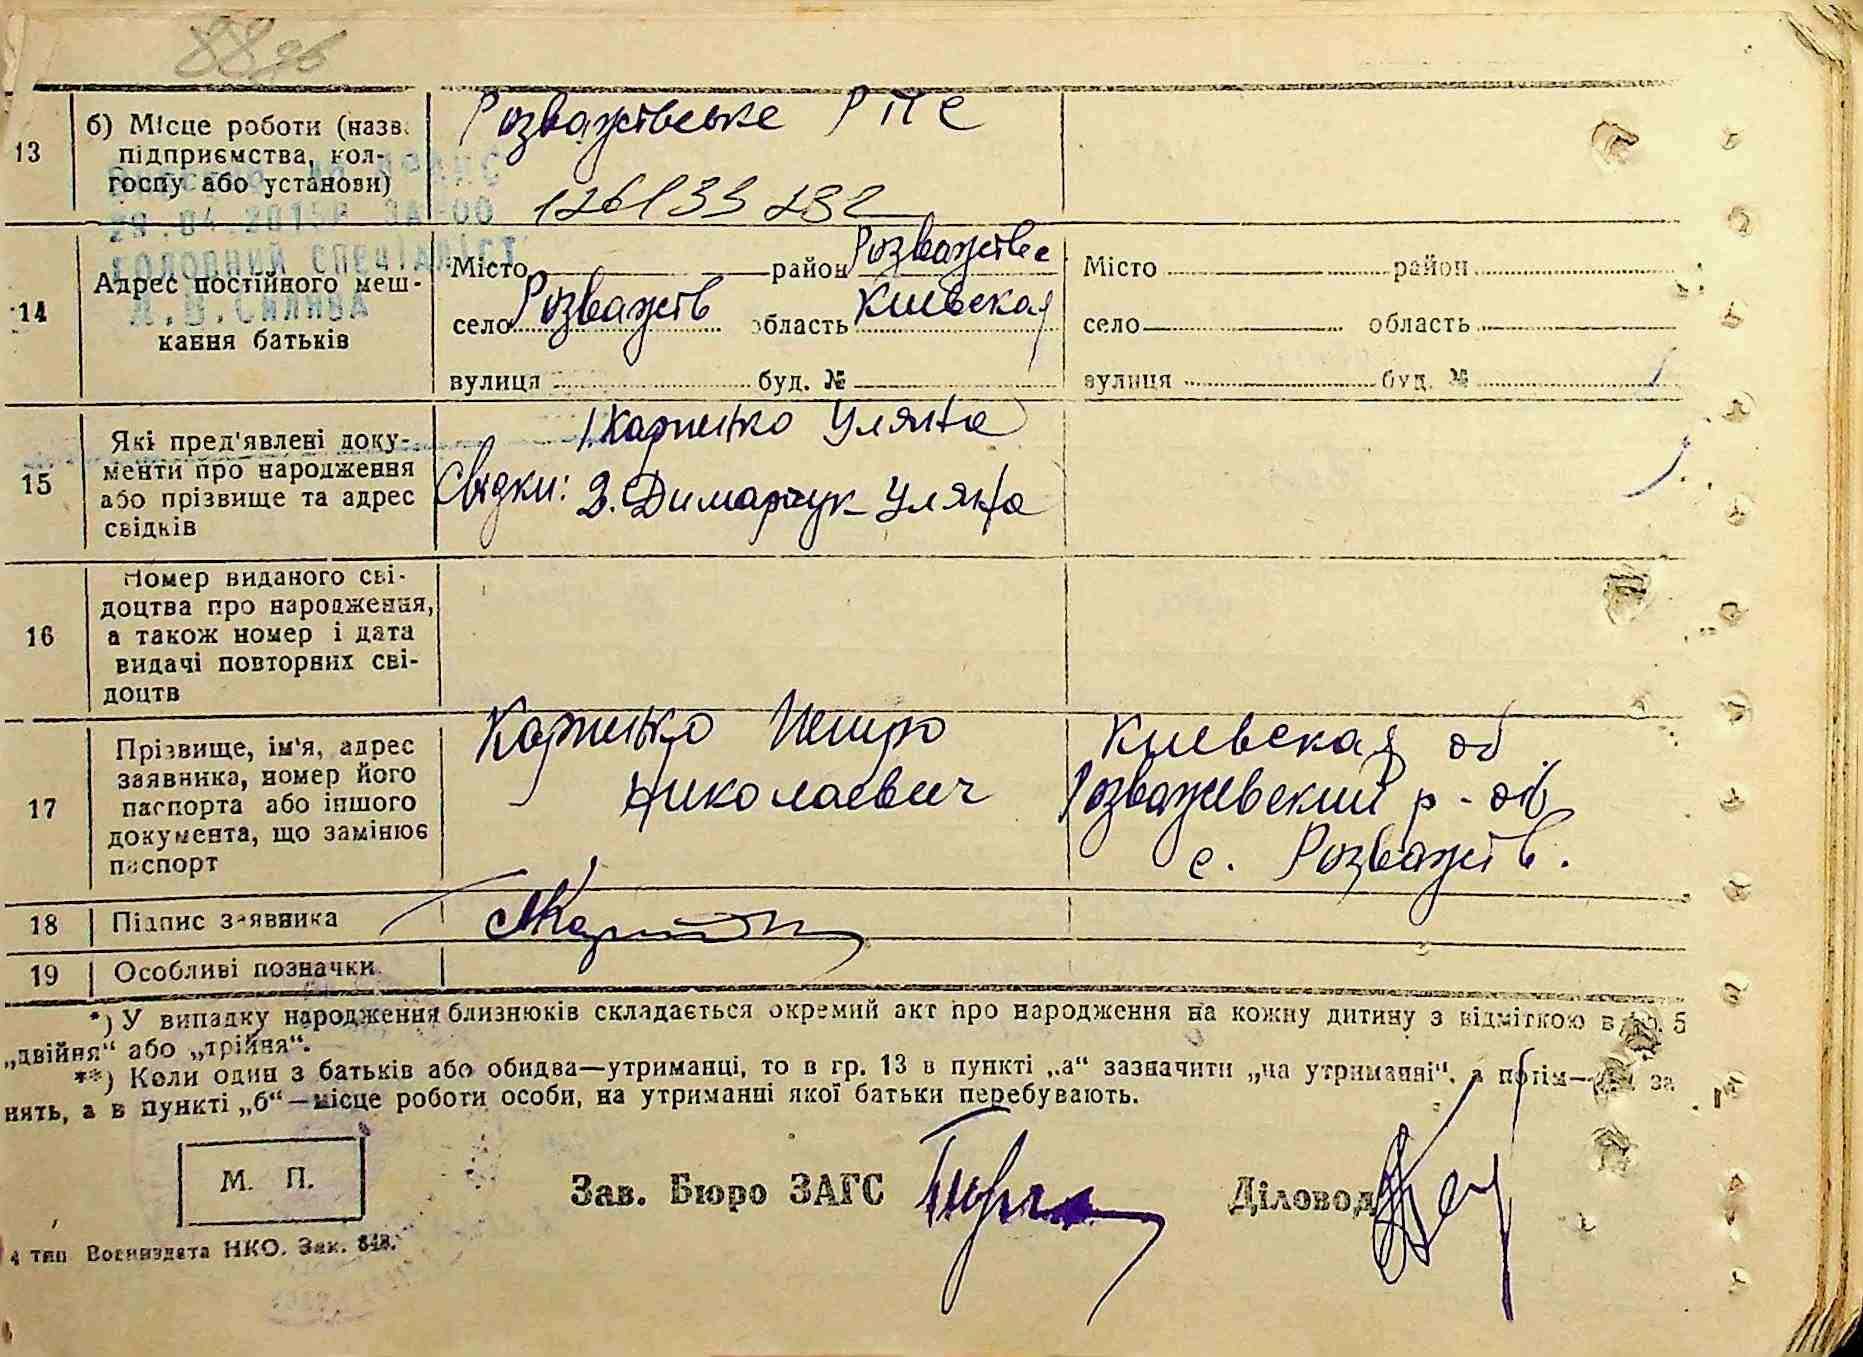 88зв
13
б) Місце роботи (назв.
підприємства, кол-
госпу або установи)
Розважівське Р П С
126133 282
29.04.2015
ГОЛОВНИЙ СПЕЦІАЛІСТ
14
Адрес постійного меш-
кання батьків
Місто район Розважівс
село Розважів область Киевская
вулиця буд. №
Місто район
село область
вулиця буд. №
15
Які пред'явлені доку-
менти про народження
або прізвище та адрес
свідків
1. Карпенко Уляна
Свідки: 2. Димарчук Уляна
16
Номер виданого сві-
доцтва про народження,
а також номер і дата
видачі повторних сві-
доцтв
17
Прізвище, ім'я, адрес
заявника, номер його
паспорта або іншого
документа, що замінює
паспорт
Карпенко Петро
Николаевич
Киевская об
Розважевский р-об
с. Розважів.
18
Підпис заявника
19
Особливі позначки
*) У випадку народження близнюків складається окремий акт про народження на кожну дитину з відміткою в гр. 5
„двійня“ або „трійня“.
**) Коли один з батьків або обидва—утриманці, то в гр. 13 в пункті „а“ зазначити „на утриманні“, а потім— за
нять, а в пункті „б“—місце роботи особи, на утриманні якої батьки перебувають.
М. П.
Зав. Бюро ЗАГС
Діловод
4 тип Воениздата НКО. Зак. 848.